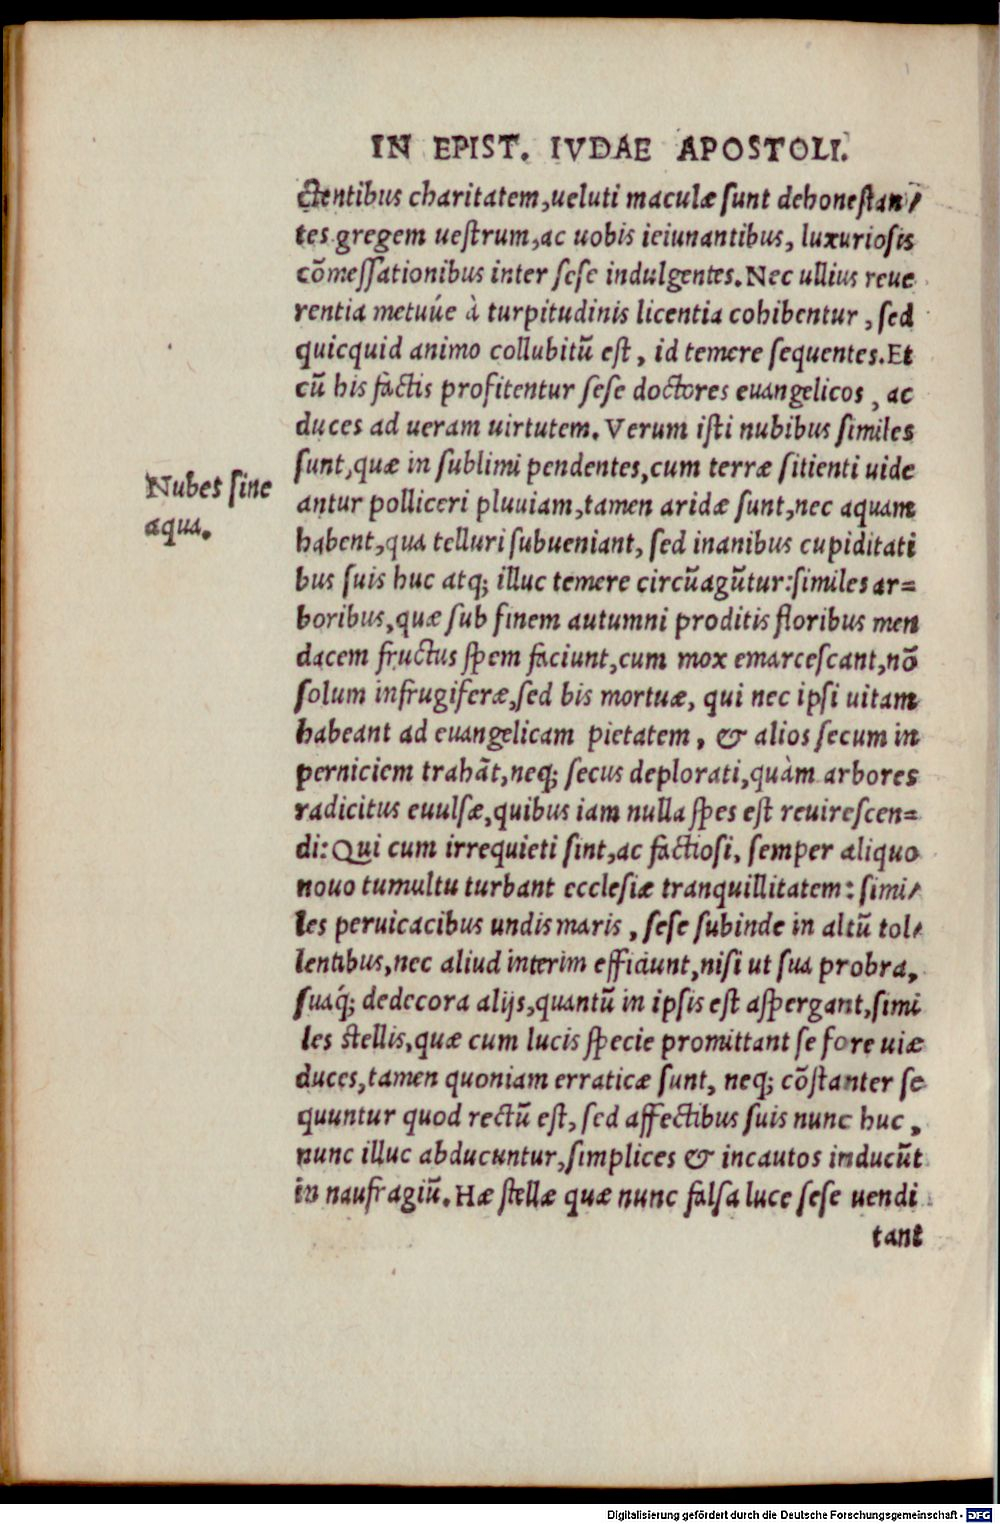 IN EPIST. IVDAE APOSTOLI.
ctentibus charitatem, ueluti maculæ sunt dehonestan⸗
tes gregem uestrum, ac uobis ieiunantibus, luxuriosis
cõmessationibus inter sese indulgentes. Nec ullius reue
rentia metuúe à turpitudinis licentia cohibentur, sed
quicquid animo collubitũ est, id temere sequentes. Et
cũ his factis profitentur sese doctores euangelicos, ac
duces ad ueram uirtutem. Verum isti nubibus similes
sunt, quæ in sublimi pendentes, cum terræ sitienti uide
antur polliceri pluuiam, tamen aridæ sunt, nec aquam
habent, qua telluri subueniant, sed inanibus cupiditati
bus suis huc atq; illuc temere circũagũtur: similes ar=
boribus, quæ sub finem autumni proditis floribus men
dacem fructus spem faciunt, cum mox emarcescant, nõ
solum infrugiferæ, sed bis mortuæ, qui nec ipsi uitam
habeant ad euangelicam pietatem, & alios secum in
perniciem trahãt, neq; secus deplorati, quàm arbores
radicitus euulsæ, quibus iam nulla spes est reuirescen=
di: Qui cum irrequieti sint, ac factiosi, semper aliquo
nouo tumultu turbant ecclesiæ tranquillitatem: simi⸗
les peruicacibus undis maris, sese subinde in altũ tol⸗
lentibus, nec aliud interim efficiunt, nisi ut sua probra,
suaq́; dedecora alijs, quantũ in ipsis est aspergant, simi
les stellis, quæ cum lucis specie promittant se fore uiæ
duces, tamen quoniam erraticæ sunt, neq; cõstanter se
quuntur quod rectũ est, sed affectibus suis nunc huc,
nunc illuc abducuntur, simplices & incautos inducũt
in naufragiũ. Hæ stellæ quæ nunc falsa luce sese uendi
tant
Nubes sine
aqua.
Digitalisierung gefördert durch die Deutsche Forschungsgemeinschaft - DFG